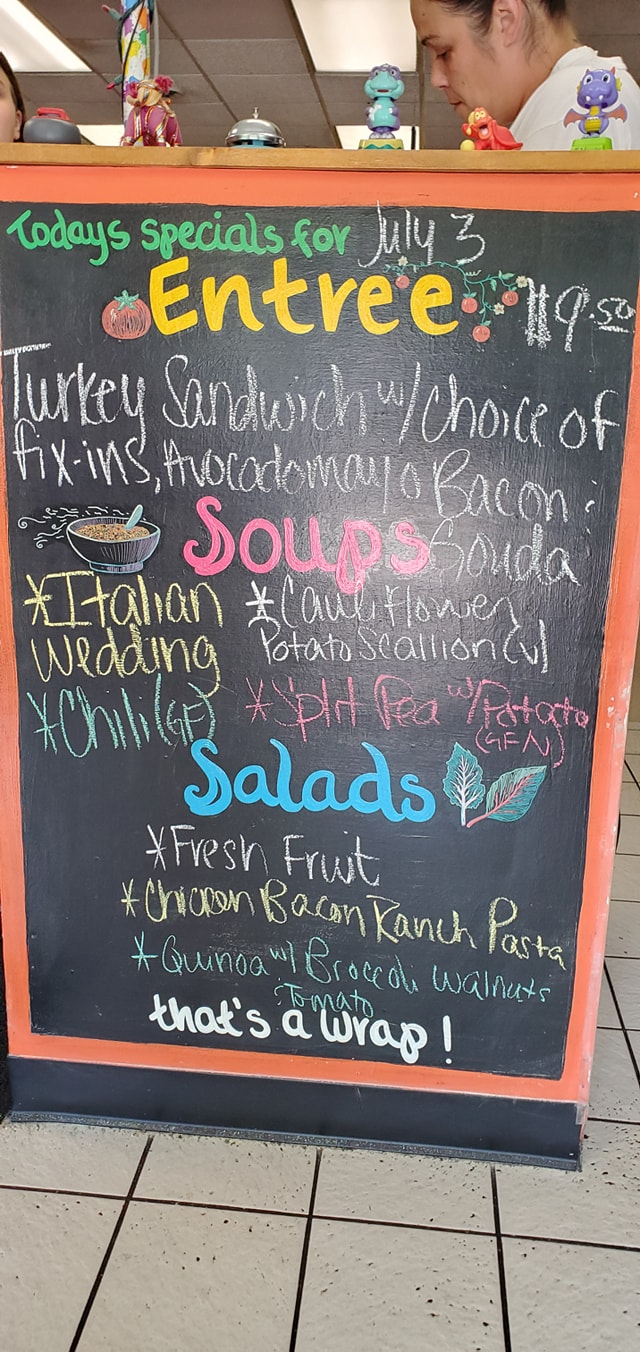 Todays specials for July 3
Entree $9.50
Turkey Sandwich w/ choice of
fix-ins, Avocado mayo Bacon :
Gouda
Soups
*Italian Wedding
*Cauliflower
Potato Scallion (v)
*Chili (GF)
*Split Pea w/ Potato
(GF N)
Salads
*Fresh Fruit
*Chicken Bacon Ranch Pasta
*Quinoa w/ Broccoli Walnuts
Tomato
that's a wrap!